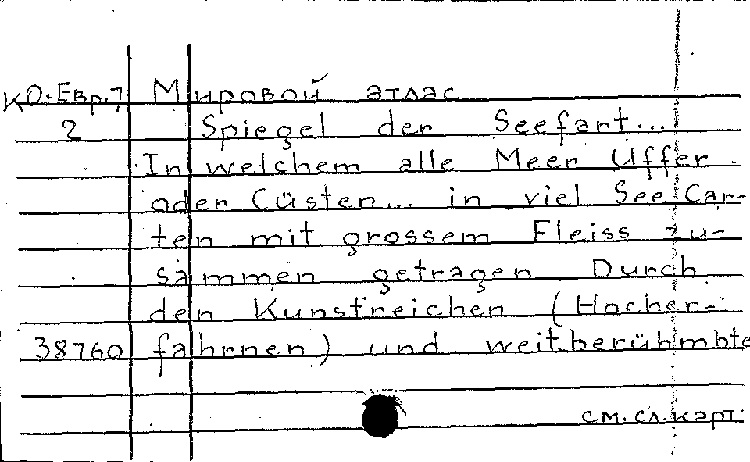 КО-Евр.7 Мировой атлас
2 Spiegel der Seefart...
In welchem alle Meer Uffer
oder Cüsten... in viel See Car-
ten mit grossem Fleiss zu-
sammen getragen Durch
den Kunstreichen (Hocher-
38760 fahrnen) und weitberühmbte
см. сл. карт.